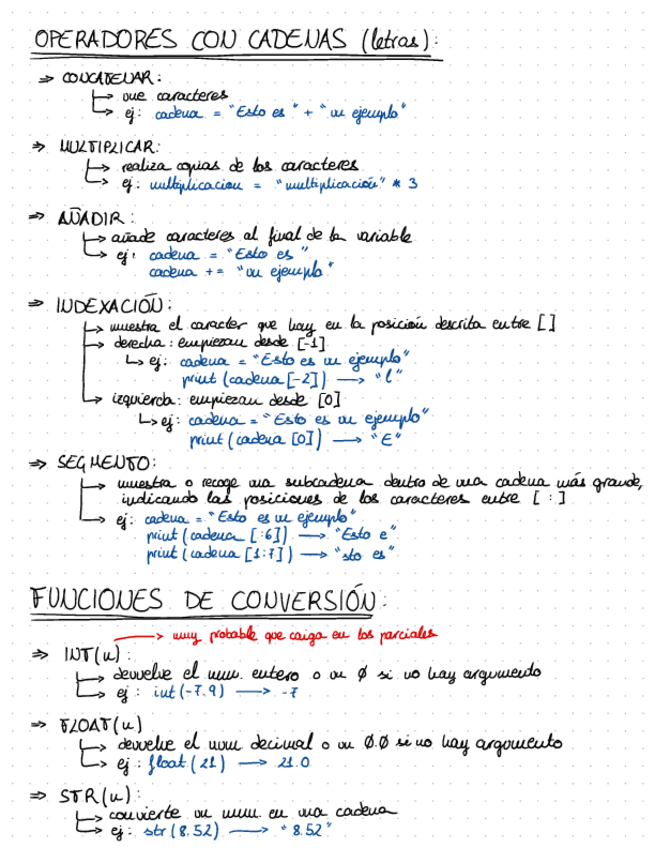 OPERADORES CON CADENAS (letras):
⇒ CONCATENAR:
↳ une caracteres
↳ ej: cadena = "Esto es " + "un ejemplo"
⇒ MULTIPLICAR:
↳ realiza copias de los caracteres
↳ ej: multiplicacion = "multiplicación" * 3
⇒ AÑADIR:
↳ añade caracteres al final de la variable
↳ ej: cadena = "Esto es "
cadena += "un ejemplo"
⇒ INDEXACIÓN:
↳ muestra el caracter que hay en la posición descrita entre []
↳ derecha: empiezan desde [-1]
↳ ej: cadena = "Esto es un ejemplo"
print (cadena [-2]) → "l"
↳ izquierda: empiezan desde [0]
↳ ej: cadena = "Esto es un ejemplo"
print (cadena [0]) → "E"
⇒ SEGMENTO:
↳ muestra o recoge una subcadena dentro de una cadena más grande,
indicando las posiciones de los caracteres entre [ : ]
↳ ej: cadena = "Esto es un ejemplo"
print (cadena [:6]) → "Esto e"
print (cadena [1:7]) → "sto es"
FUNCIONES DE CONVERSIÓN:
→ muy probable que caiga en los parciales
⇒ INT(n):
↳ devuelve el num. entero o un 0 si no hay argumento
↳ ej: int(-7.9) → -7
⇒ FLOAT(n)
↳ devuelve el num decimal o un 0.0 si no hay argumento
↳ ej: float(21) → 21.0
⇒ STR(n):
↳ convierte un num. en una cadena
↳ ej: str(8.52) → "8.52"